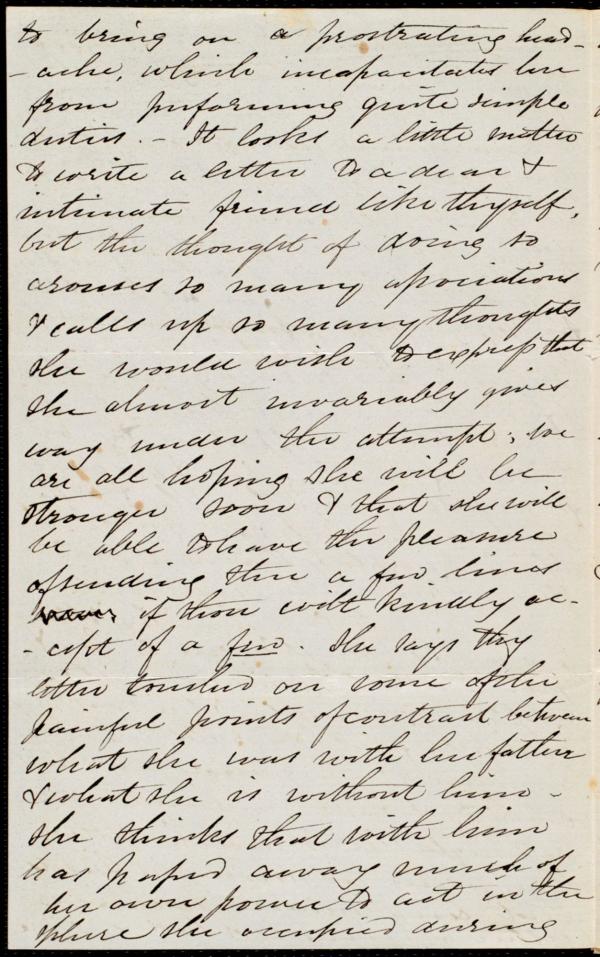 to bring on a prostrating head-
-ache, which incapacitates her
from performing quite simple
duties. - It looks a little matter
to write a letter to a dear &
intimate friend like thyself,
but the thought of doing so
arouses so many associations
& calls up so many thoughts
she would wish to express that
she almost invariably gives
way under the attempt; we
are all hoping she will be
stronger soon & that she will
be able to have the pleasure
of sending thee a few lines
if thou wilt kindly ac-
-cept of a few. She says thy
letter touched on some of the
painful points of contrast between
what she was with her father
& what she is without him -
she thinks that with him
has passed away much of
her own power to act in the
sphere she occupied during